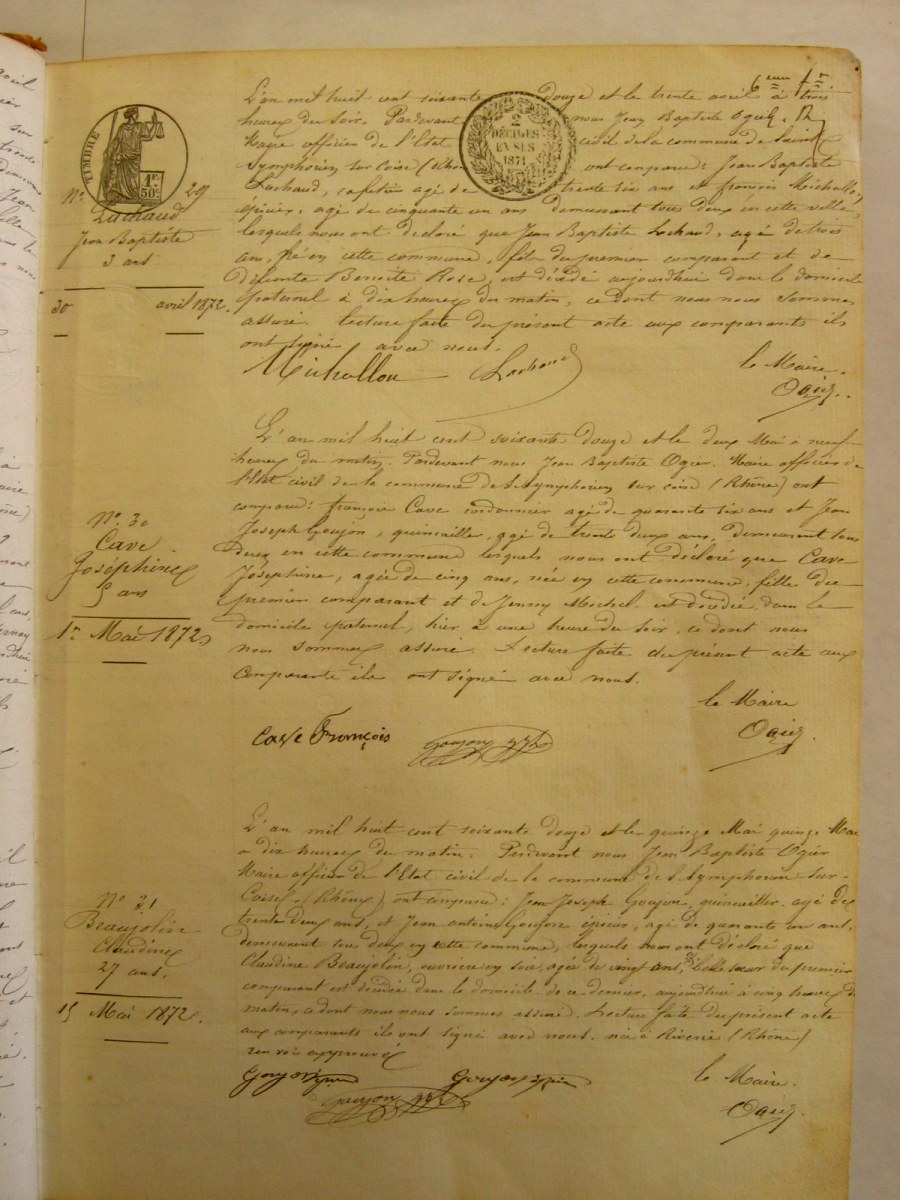 6eme fr
TIMBRE
1 FR
50c
2
DÉCIMES
EN SUS
1871
No. 29
Lachaud
Jean Baptiste
3 ans
30 avril 1872
L'an mil huit cent soixante douze et le trente avril à trois
heures du soir. Pardevant nous Jean Baptiste Ogier
Maire officier de l'Etat civil de la commune de Saint
Symphorien sur Coise (Rhône) ont comparu: Jean Baptiste
Lachaud, agé de trente six ans et françois Michallon
épicier, agé de cinquante un ans demeurant tous deux en cette ville,
lesquels nous ont declaré que Jean Baptiste Lachaud, agé de trois
ans, né en cette commune, fils du premier comparant et de
défunte Benoite Rose, est décédé aujourdhui dans le domicile
paternel à dix heures du matin, ce dont nous nous sommes
assuré. Lecture faite du présent acte aux comparants ils
ont signé avec nous.
Michallon Lachaud
le Maire.
Ogier.
No. 30
Cave
Joséphine
5 ans
1er Mai 1872
L'an mil huit cent soixante douze et le deux Mai à neuf
heures du matin. Pardevant nous Jean Baptiste Ogier. Maire officier de
l'Etat civil de la commune de St. Symphorien sur Coise (Rhône) ont
comparu: françois Cave cordonnier agé de quarante six ans et Jean
Joseph Goujon, quincailler, agé de trente deux ans, demeurant tous
deux en cette commune lesquels nous ont déclaré que Cave
Joséphine, agée de cinq ans, née en cette commune, fille du
premier comparant et de Jenny Michel est décédée dans le
domicile paternel, hier à une heure du soir, ce dont nous
nous sommes assuré. Lecture faite du présent acte aux
Comparants ils ont signé avec nous.
le Maire
Ogier
Cave François Goujon
No 31
Beaujolin
Claudine
27 ans.
15 Mai 1872.
L'an mil huit cent soixante douze et le quinze Mai quinze Mai
a dix heures du matin. Pardevant nous Jean Baptiste Ogier
Maire officier de l'Etat civil de la commune de St. Symphorien-sur-
Coise (Rhône) ont comparu: Jean Joseph Goujon, quincailler, agé de
trente deux ans, et Jean antoine épicier, agé de quarante un ans,
demeurant tous deux en cette commune, lesquels nous ont déclaré que
Claudine Beaujolin, ouvrière en soie, agée de vingt ans, belle sœur du premier
comparant est décédée dans le domicile de ce dernier, aujourdhui à cinq heures du
matin, ce dont nous nous sommes assuré. Lecture faite du présent acte
aux comparants ils ont signé avec nous. née à Riverie (Rhône)
renvoi approuvé
Goujon
Goujon
le Maire.
Ogier